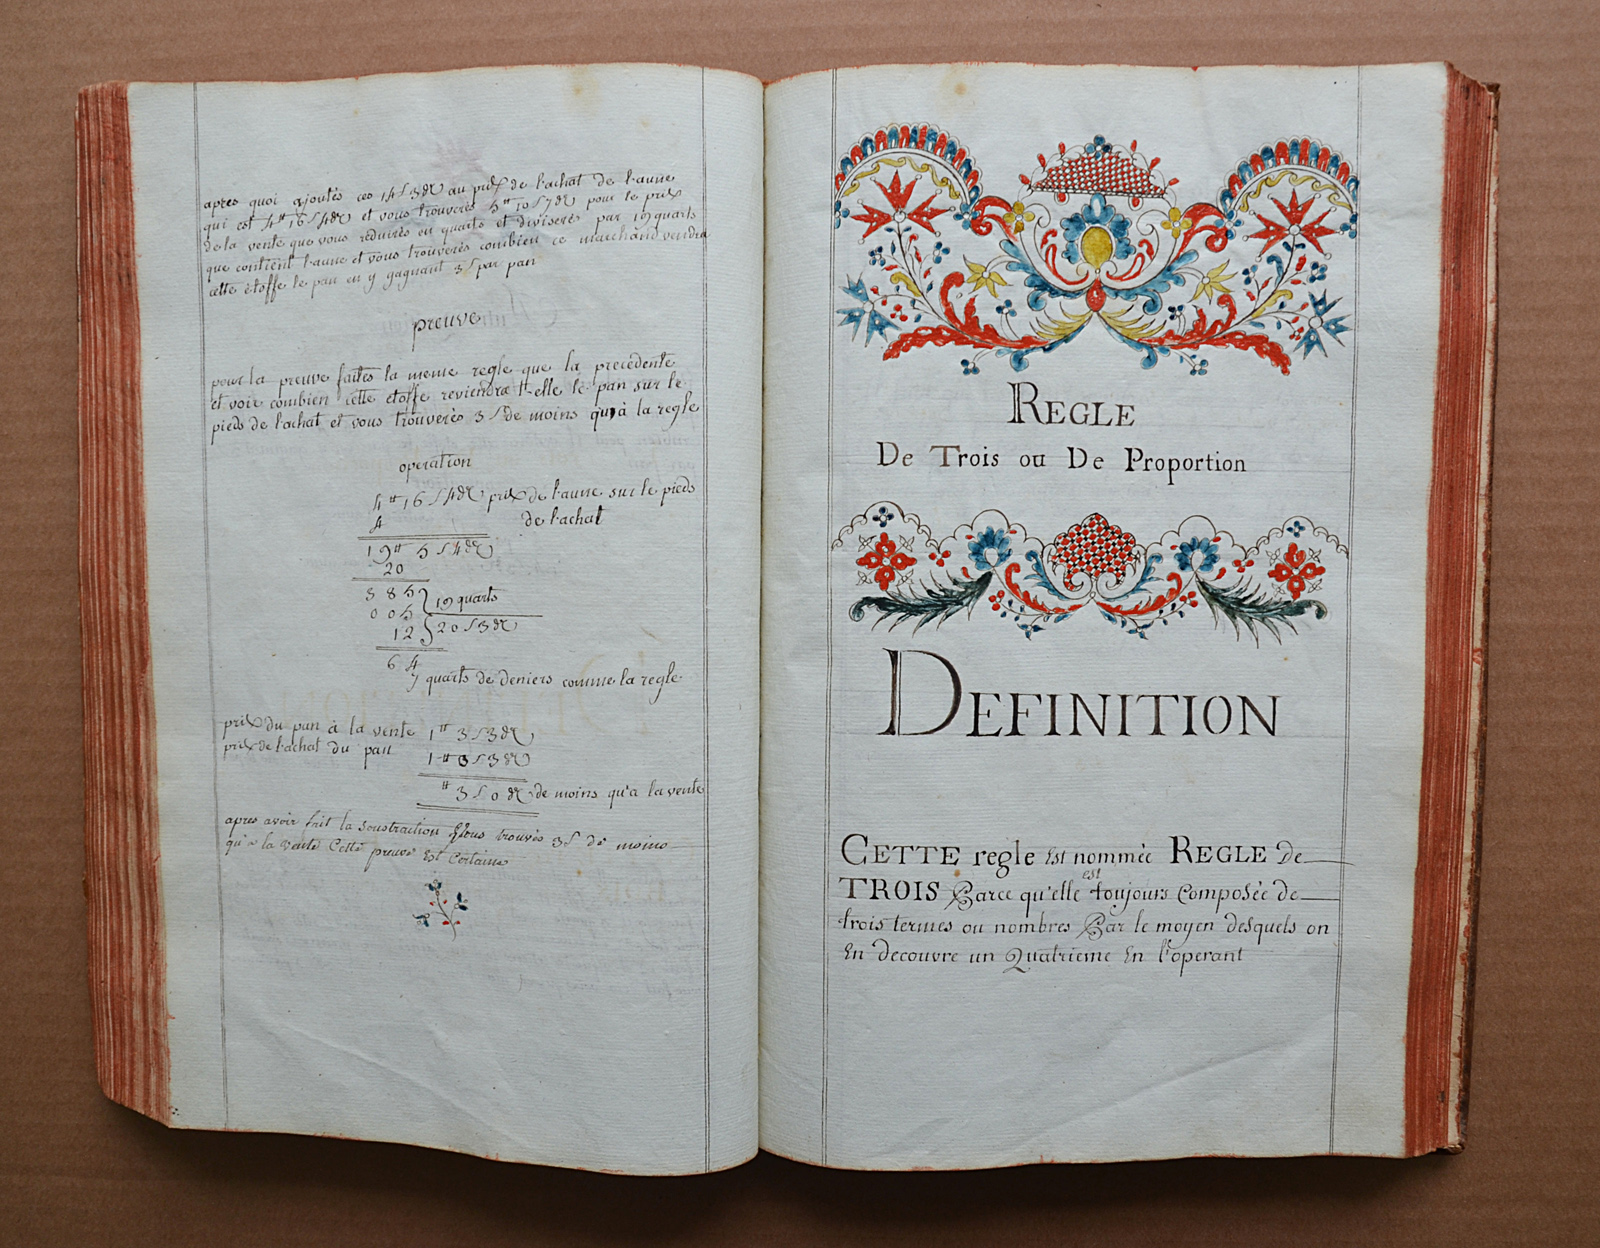 apres quoi ajoutés ces 14 s 3 dr au prix de l'achat de l'aune
qui est 4 tt 16 s 4 dr et vous trouverés 5 tt 10 s 7 dr pour le prix
de la vente que vous réduirés en quarts et diviserés par 19 quarts
que contient l'aune et vous trouverés combien ce marchand vendra
cette étoffe le pan en y gagnant 3 s par pan
preuve
pour la preuve faites la meme regle que la precedente
et voir combien cette etoffe reviendra t-elle le pan sur le
pieds de l'achat et vous trouverés 3 s de moins qu'à la regle
operation
4 tt 16 s 4 dr prix de l'aune sur le pieds
4 de l'achat
19 tt 5 s 4 dr
20
385 } 19 quarts
005
12 } 20 s 3 dr
64
7 quarts de deniers comme la regle
prix du pan à la vente 1 tt 3 s 3 dr
prix de l'achat du pan 1 tt 0 s 3 dr
tt 3 s 0 dr de moins qu'a la vente
apres avoir fait la soustraction vous trouvés 3 s de moins
qu'a la vente Cette preuve Est Certaine
REGLE
De Trois ou De Proportion
DEFINITION
CETTE regle Est nommée REGLE de
TROIS Parce qu'elle est toujours Composée de
trois termes ou nombres Par le moyen desquels on
En decouvre un Quatrieme En l'operant